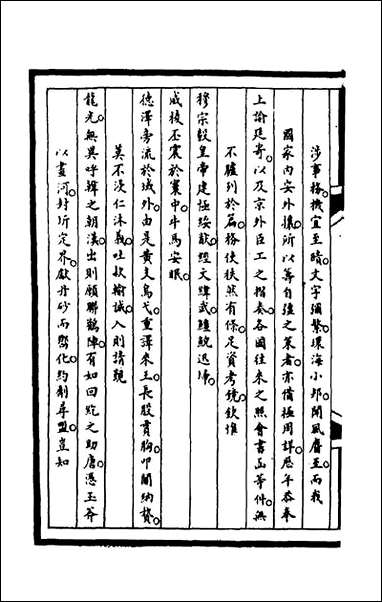 涉事務機宜至晴文字彌繁環海小邦聞風麕至而我
國家內安外攘所以籌自強之策者亦備極周詳歷年恭奉
上諭廷寄以及京外臣工之摺奏各國往來之照會書函等件無
不臚列於篇務使秩然有條足資考鏡欽惟
穆宗毅皇帝建極綏猷經文緯武鱷鯢迅掃
威稜丕震於寰中牛馬安眠
德澤旁流於域外由是黃支烏弋重譯來王長股貫胸叩關納贄
莫不浸仁沐義吐款輸誠入則請覲
龍光無異呼韓之朝漢出則願聯鸛陣有如回紇之助唐憑玉斧
以畫河封圻定界獻丹砂而嚮化約劑尋盟豈如